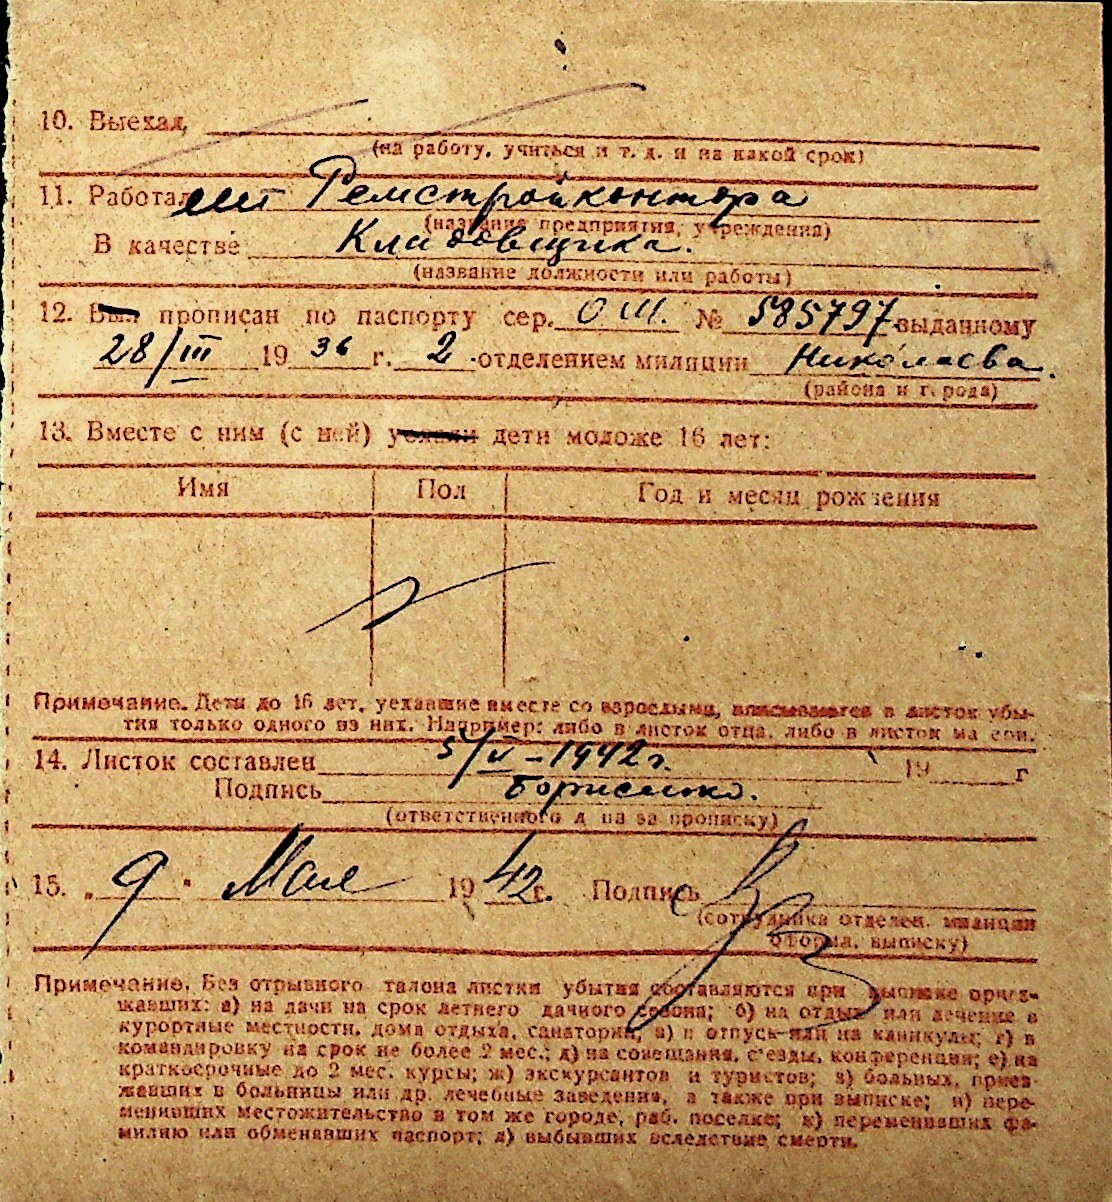 10. Выехал,
(на работу, учиться и т. д. и на какой срок)
11. Работал Ремстройконтора
(название предприятия, учреждения)
В качестве Кладовщика.
(название должности или работы)
12. Был прописан по паспорту сер. ОШ. № 585797 выданному
28/III 1936 г. 2 отделением милиции Николаева.
(района и города)
13. Вместе с ним (с ней) уехали дети моложе 16 лет:
Имя Пол Год и месяц рождения
Примечание. Дети до 16 лет, уехавшие вместе со взрослыми, вписываются в листок убы-
тия только одного из них. Например: либо в листок отца, либо в листок матери.
14. Листок составлен 5/V - 1942 г. 19 г
Подпись Борисенко.
(ответственного лица за прописку)
15. „9" Мая 1942 г. Подпись
(сотрудника отделен. милиции
оформл. выписку)
Примечание. Без отрывного талона листки убытия составляются при выписке приез-
жавших: а) на дачи на срок летнего дачного сезона; б) на отдых или лечение в
курортные местности, дома отдыха, санатории; в) в отпуск или на каникулы; г) в
командировку на срок не более 2 мес.; д) на совещания, съезды, конференции; е) на
краткосрочные до 2 мес. курсы; ж) экскурсантов и туристов; з) больных, приез-
жавших в больницы или др. лечебные заведения, а также при выписке; и) пере-
менивших местожительство в том же городе, раб. поселке; к) переменивших фа-
милию или обменявших паспорт; л) выбывших вследствие смерти.